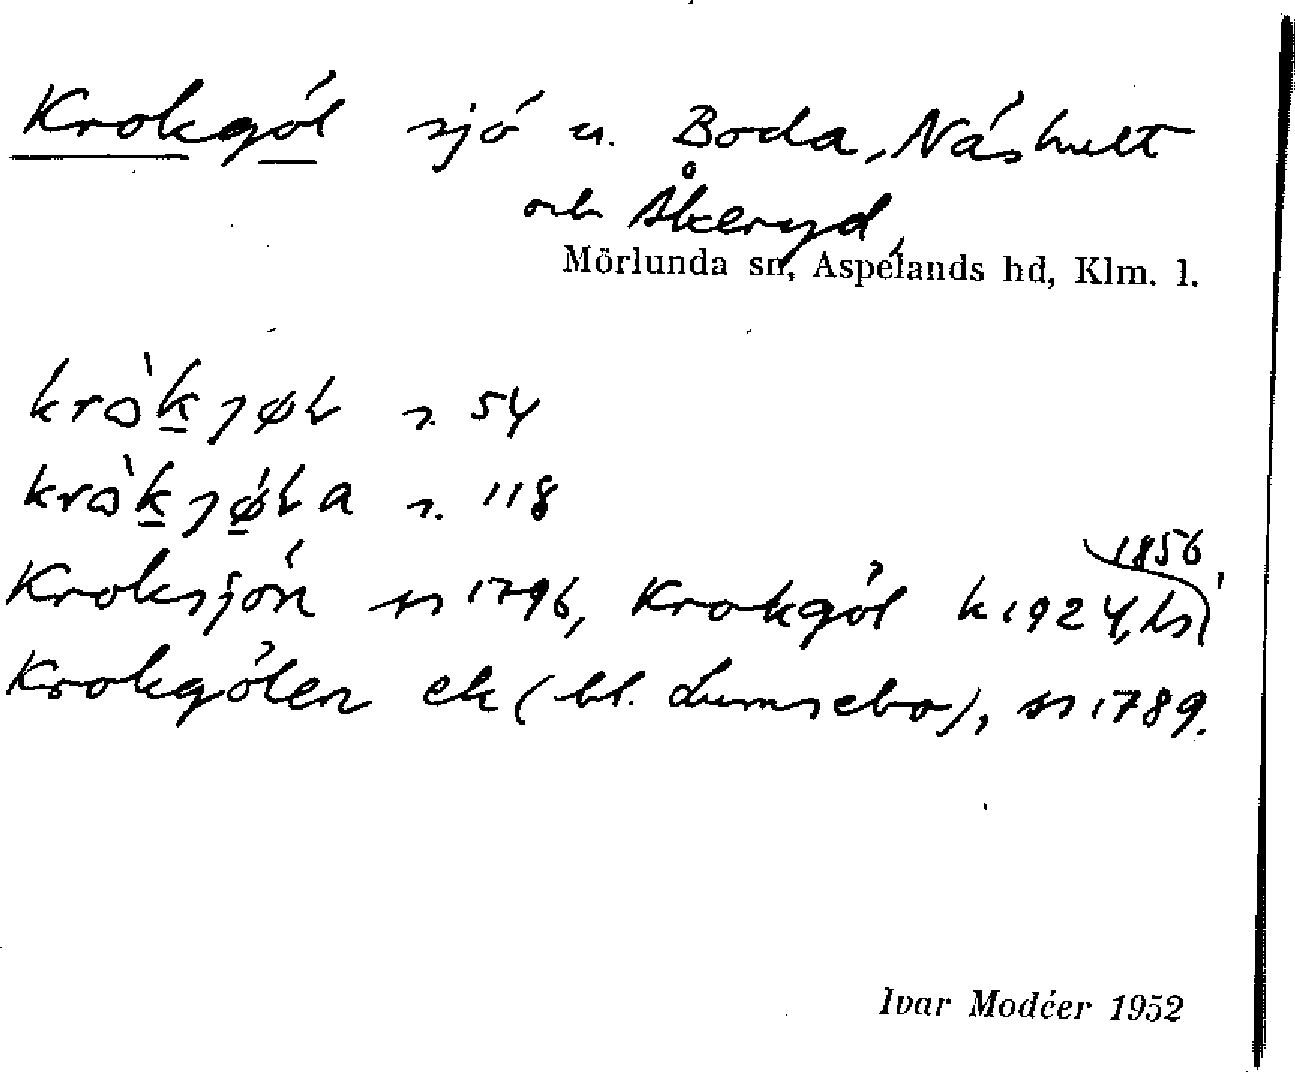 Krokgöl sjö u. Boda, Näshult
och Åkeryd,
Mörlunda sn, Aspelands hd, Klm. l.
krò̀k jøL s. 54
krò̀k jǿLa s. 118
1856,
Kroksjön ss 1796, Krokgöl k 1924,
Krokgölen ek (bl. Lumsebo), ss 1789.
Ivar Modéer 1952